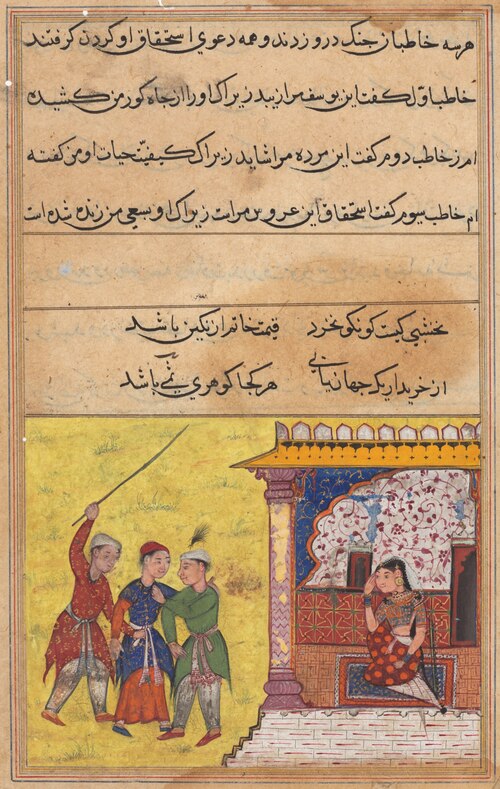 هرسه خاطبان جنک در و زدند و همه دعوی استحقاق او کردن کرفتند
خاطب اول کفت این یوسف مرا زیبد زیراک او را از جاه کور من کشیده
ام ز خاطب دوم کفت این مرده مرا شاید زیراک کیفیت حیات او من کفته
ام خاطب سیوم کفت استحقاق این عروس مراست زیراک او بسعی من زنده شده است
نخشبی کیست کو نکو نخرد قیمت خاتم از نکین باشد
از خریدار یک جهان یابی هر کجا کوهری ثمین باشد